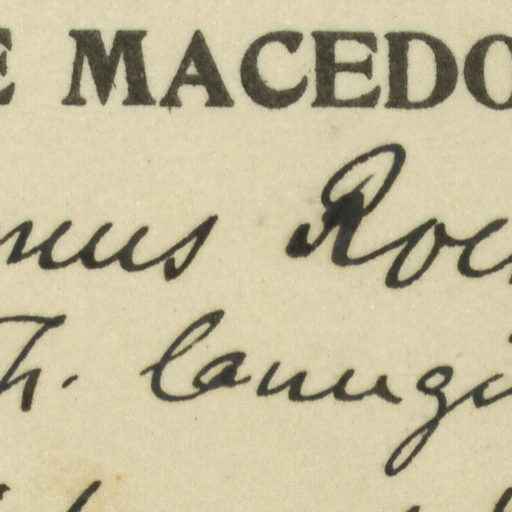 E MACEDO
nus Roc
Th. lanugi